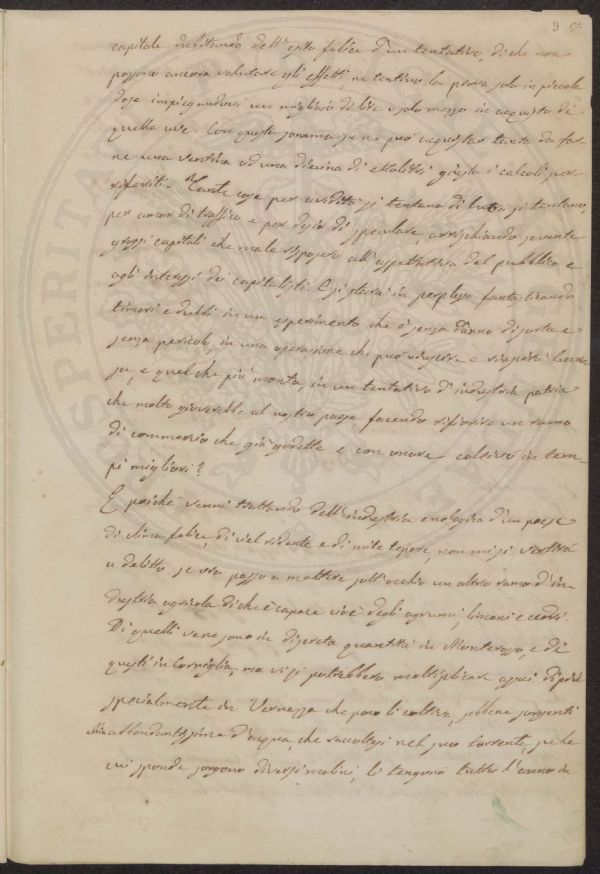 9
capitale dubitando dell'esito felice d'un tentativo, di che non
possono ancora valutare gli effetti, ne tentino la prova solo in piccola
dose impiegandovi un migliaio di lire o solo mezzo in acquisto di
quelle uve. Con questa somma se ne può acquistar tanta da far-
ne una ventina od una diecina di ettolitri giusta i calcoli sur-
riferiti. Tante cose per avidità si tentano di lucro, si tentano,
per amor di traffico e per desio di speculare, arrischiando sovente
grossi capitali che male risposero all'aspettativa del pubblico e
agli interessi dei capitalisti. E si starà in perplesso fantasticando
timori e dubbi in un esperimento che è senza danno di sorta e
senza pericolo, in una operazione che può riuscire e riuscirà
e quel che più monta, in un tentativo d'industria patria
che molto gioverebbe al nostro paese facendo rifiorire un ramo
di commercio che già godette e con onore coltivò in tem-
pi migliori?
E poichè venni trattando dell'industria enologica d'un paese
di clima felice, di ciel ridente e di mite tepore, non mi si vertirà
a delitto se ora passo a mettere sott'occhio un altro ramo d'in-
dustria agricola di che è capace cioè degli agrumi, limoni e cedri.
Di quelli ve ne sono in discreta quantità in Monterosso, e di
questi in Corniglia, ma vi si potrebbero moltiplicare assai di più
specialmente in Vernazza che poco li coltiva, sebbene sorgenti
abbia abbondantissime d'acqua, che raccoltesi nel suo torrente, su le
cui sponde sorgono diversi molini, li tengono tutto l'anno in